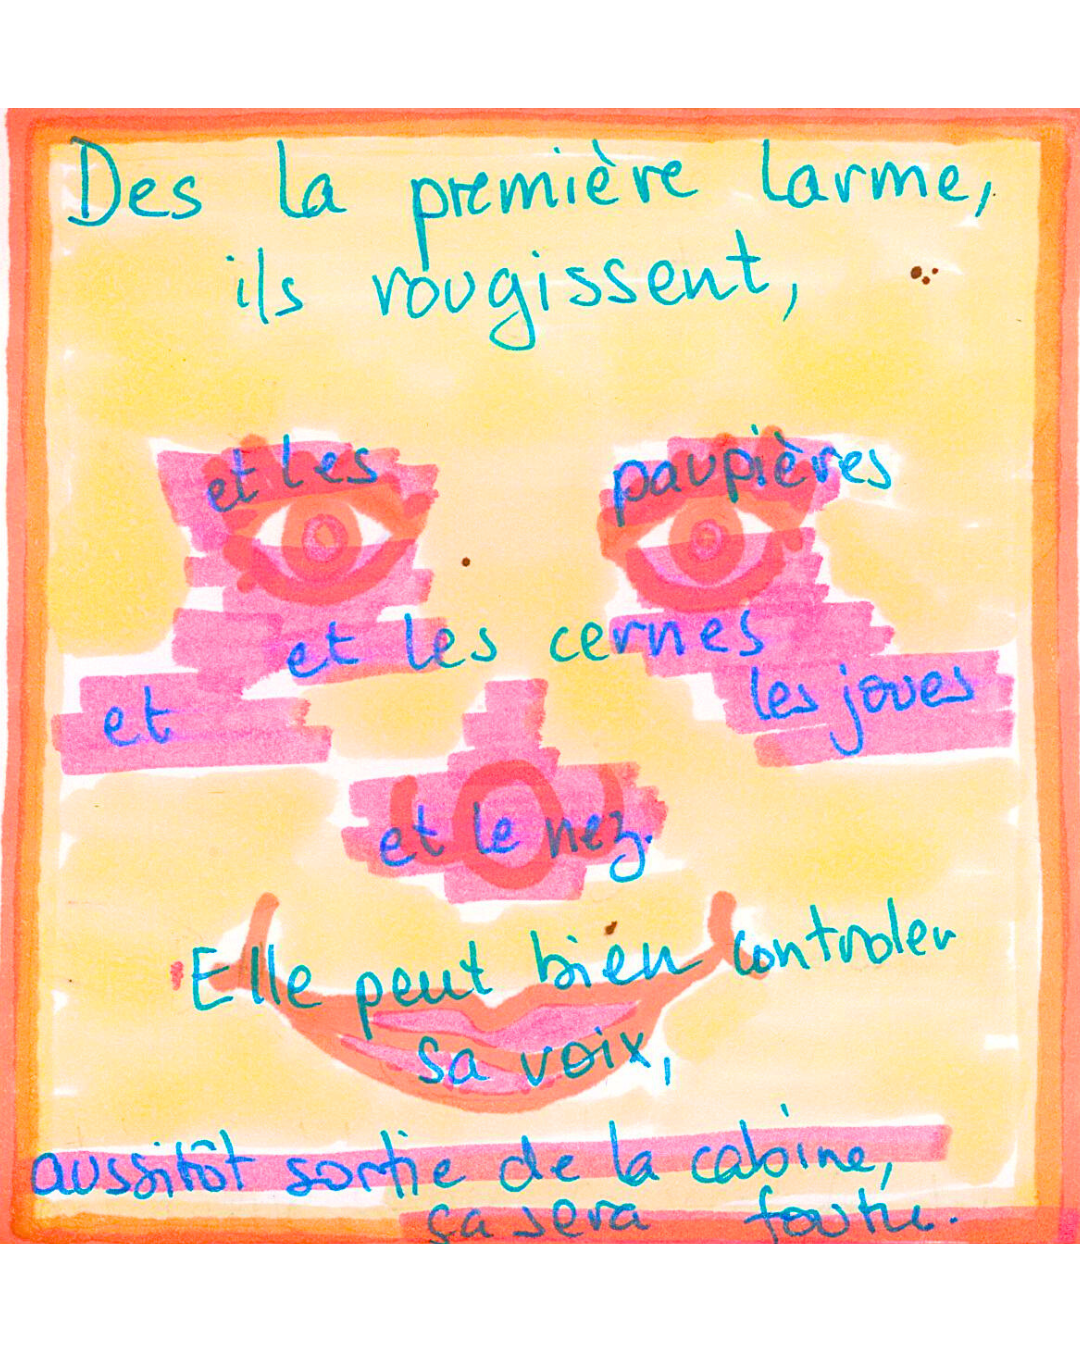 Des la première larme,
ils rougissent,
et les paupières
et les cernes
et les joues
et le nez.
Elle peut bien controler
sa voix,
aussitôt sortie de la cabine,
ça sera foutu.